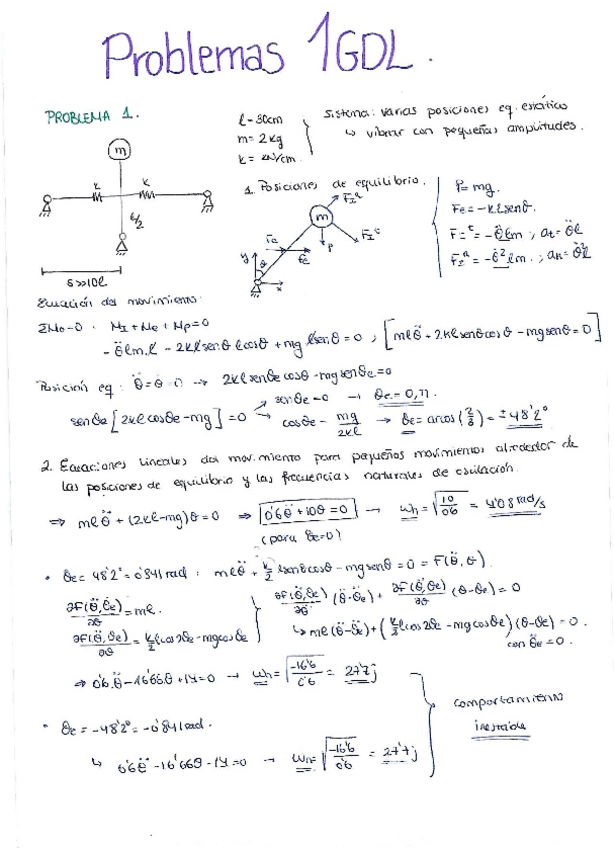 Problemas 1GDL.
PROBLEMA 1.
l = 30cm
m = 2kg
k = 2N/cm.
Sistema: varias posiciones eq. estático
↳ vibrar con pequeñas amplitudes.
m
k
k
l/2
S>>10l
1. Posiciones de equilibrio.
m
P
Fe
Fe
y
θ
x
P = mg.
Fe = -klsenθ.
at = θ̈l
Ecuación del movimiento:
ΣMo = 0 : MI + Me + Mp = 0
-θ̈lm.l - 2klsenθ lcosθ + mg lsenθ = 0 ; [mlθ̈ + 2klsenθcosθ - mgsenθ = 0]
Posición eq: θ̈ = θ̇ = 0 → 2klsenθecosθ - mgsenθe = 0
senθe [2klcosθe - mg] = 0
senθe = 0 → θe = 0, π.
cosθe = mg/2kl → θe = arcos(2/3) = ±48'2°
2. Ecuaciones lineales del movimiento para pequeños movimientos alrededor de
las posiciones de equilibrio y las frecuencias naturales de oscilación.
⇒ mlθ̈ + (2kl-mg)θ = 0 ⇒ 0'6θ̈ + 10θ = 0 → ωn = √(10/0'6) = 4'08 rad/s
(para θe=0)
• θe = 48'2° = 0'841rad : mlθ̈ + k/2 lsenθcosθ - mgsenθ = 0 = F(θ̈, θ).
= ml.
= k/2 lcos2θe - mgcosθe
(θ̈-θ̈e) + (θ-θe) = 0
↳ ml(θ̈-θ̈e) + (k/2 lcos2θe - mgcosθe)(θ-θe) = 0
con θ̈e = 0.
⇒ 0'6θ̈ - 16'66θ + 14 = 0 → ωn = √(-16'6/0'6) = 27'7j
• θe = -48'2° = -0'841rad.
↳ 0'6θ̈ - 16'66θ - 14 = 0 → ωn = √(-16'6/0'6) = 27'7j
comportamiento
inestable